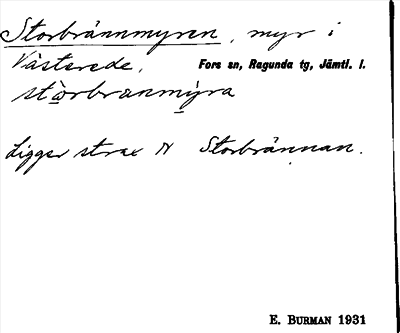 Storbrännmyren, myr i
Västerede, Fors sn, Ragunda tg, Jämtl. l.
stòrbranmỳra
Ligger strax N Storbrännan.
E. BURMAN 1931